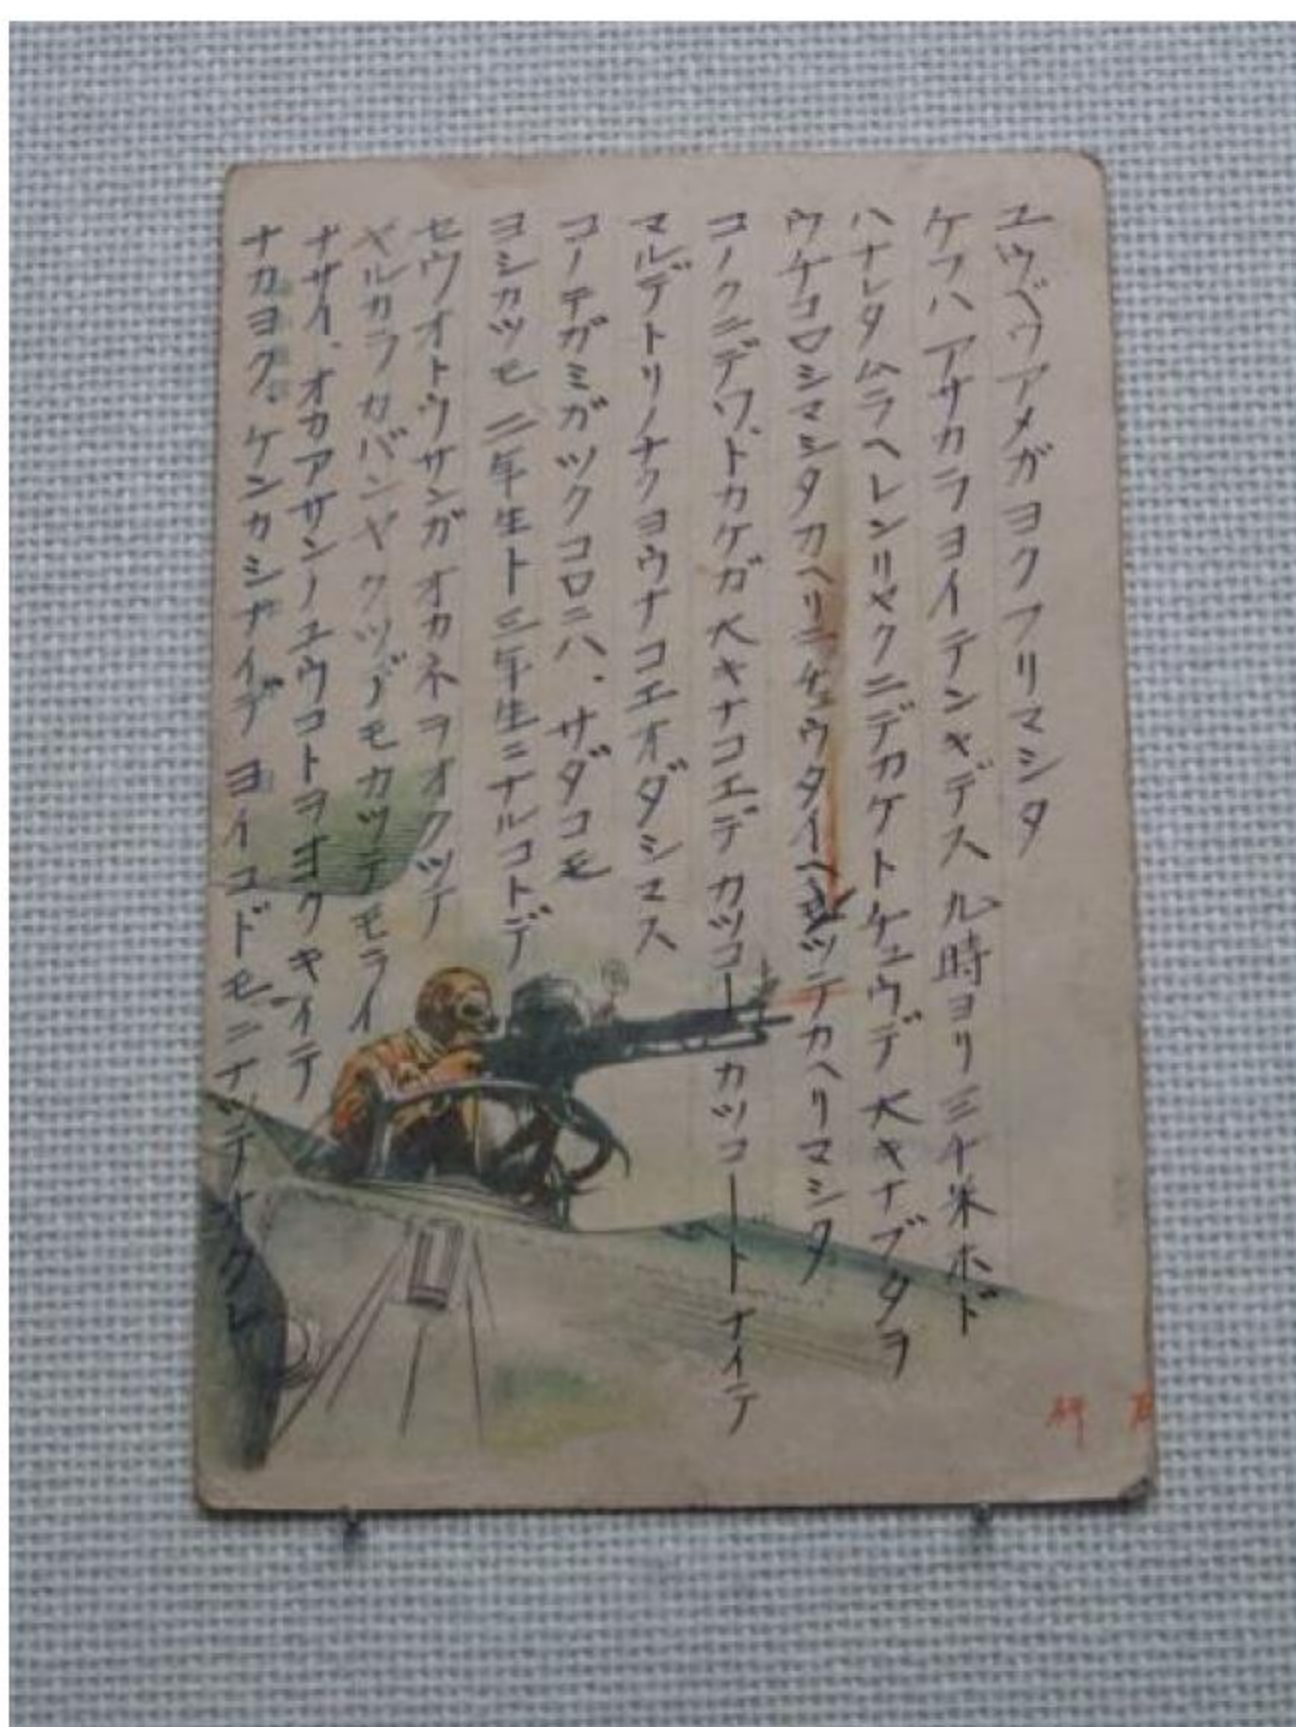 ユウベワアメガヨクフリマシタ
ケフハアサカラヨイテンキデス九時ヨリ三千米ホド
ハナレタムラヘレンリヤクニデカケトケュウデ大キナブタヲ
ウケコロシマシタカヘリニチュウタイヘモツテカヘリマシタ
コノクニデワ、トカゲガ大キナコエデカツコーカツコートナイテ
マルデトリノナクヨウナコエオダシマス
コノテガミガツクコロニハ、サダコモ
ヨシカツモ二年生ト三年生ニナルコトデ
セウオトウサンガオカネヲオクツテ
ヤルカラカバンヤクツデモカツテモライ
ナサイ、オカアサンノユウコトヲヨクキイテ
ナカヨク。ケンカシナイデヨイコドモニナツテオクレ